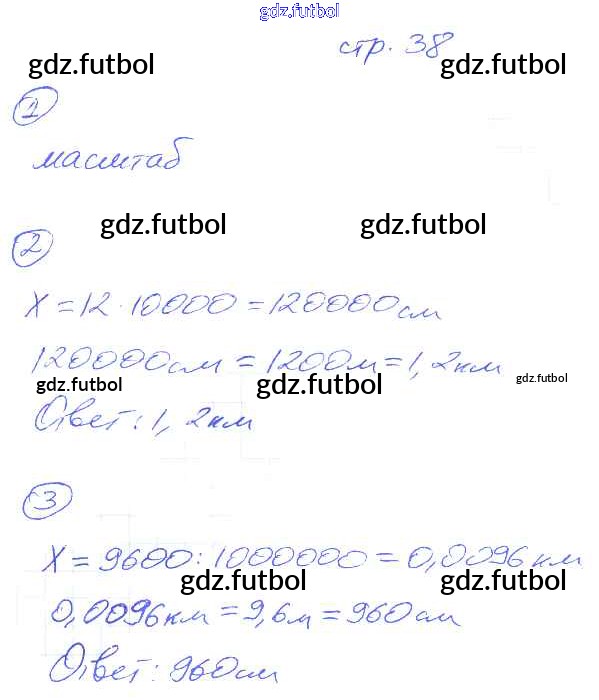 gdz.futbol
стр. 38
gdz.futbol gdz.futbol
1
масштаб
gdz.futbol gdz.futbol
2
X = 12 · 10000 = 120000 см
120000 см = 1200 м = 1,2 км
gdz.futbol gdz.futbol gdz.futbol
Ответ: 1,2 км
3
X = 9600 : 1000000 = 0,0096 км
gdz.futbol gdz.futbol
0,0096 км = 9,6 м = 960 см
Ответ: 960 см